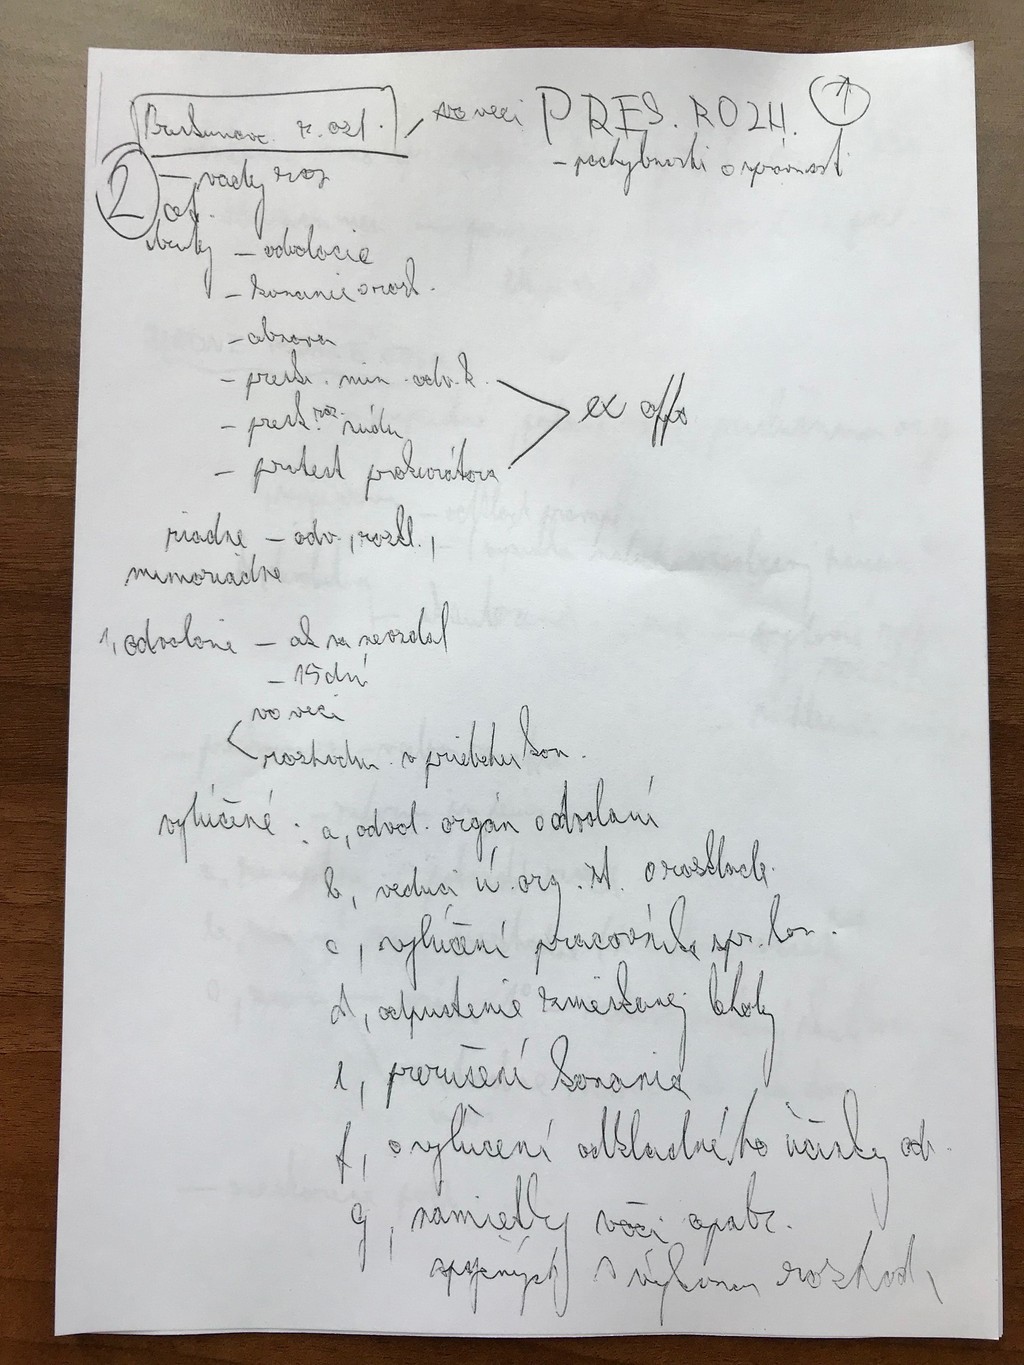 vo veci PRES. ROZH. 1
- pochybnosti o správnosti
2 - vady roz
- odvolacie
- konanie o rozkl.
- obnova
- presk. min. odv. k.
- presk. roz. súdu
- protest prokurátora
ex offo
riadne - odv., rozkl.,
mimoriadne
1, odvolanie - ak sa nevzdal
- 15 dní
vo veci
rozhodn. v priebehu kon.
vylúčené : a, odvol. orgán o odvolaní
b, vedúci ú. org. št. o rozkladk.
c, vylúčení pracovníka spr. kon.
d, odpustenie zmeškanej lehoty
e, prerušení konania
f, o vylúčení odkladného účinku od.
g, námietky voči opatr.
spojených s výkonom rozhod.